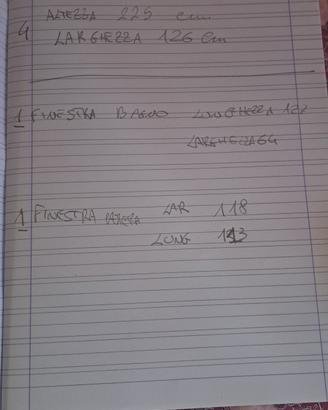 ALTEZZA 225 cm
4 LARGHEZZA 126 cm
1 FINESTRA BAGNO LUNGHEZZA 102
LARGHEZZA 64
1 FINESTRA LAR 118
LONG 143